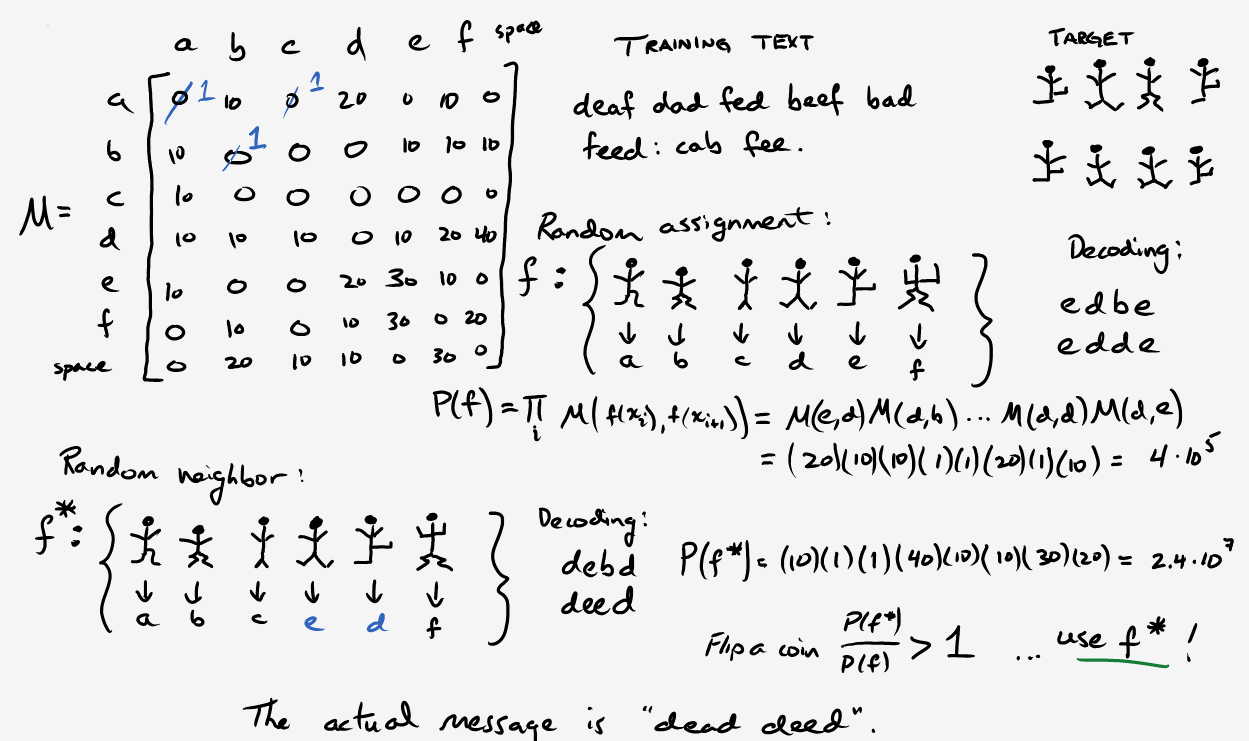 a b c d e f space
TRAINING TEXT
TARGET
M =
a 0 1 10 0 1 20 0 10 0
b 10 0 1 0 0 10 10 10
c 10 0 0 0 0 0 0
d 10 10 10 0 10 20 40
e 10 0 0 20 30 10 0
f 0 10 0 10 30 0 20
space 0 20 10 10 0 30 0
deaf dad fed beef bad
feed: cab fee.
Random assignment:
f: { ↓ ↓ ↓ ↓ ↓ ↓ }
a b c d e f
Decoding:
edbe
edde
P(f) = ∏i M(f(xi), f(xi+1)) = M(e,d)M(d,b) ... M(d,d)M(d,e)
= (20)(10)(10)(1)(1)(20)(1)(10) = 4·10^5
Random neighbor:
f*: { ↓ ↓ ↓ ↓ ↓ ↓ }
a b c e d f
Decoding:
debd
deed
P(f*) = (10)(1)(1)(40)(10)(10)(30)(20) = 2.4·10^7
Flip a coin P(f*)/P(f) > 1 ... use f* !
The actual message is "dead deed".